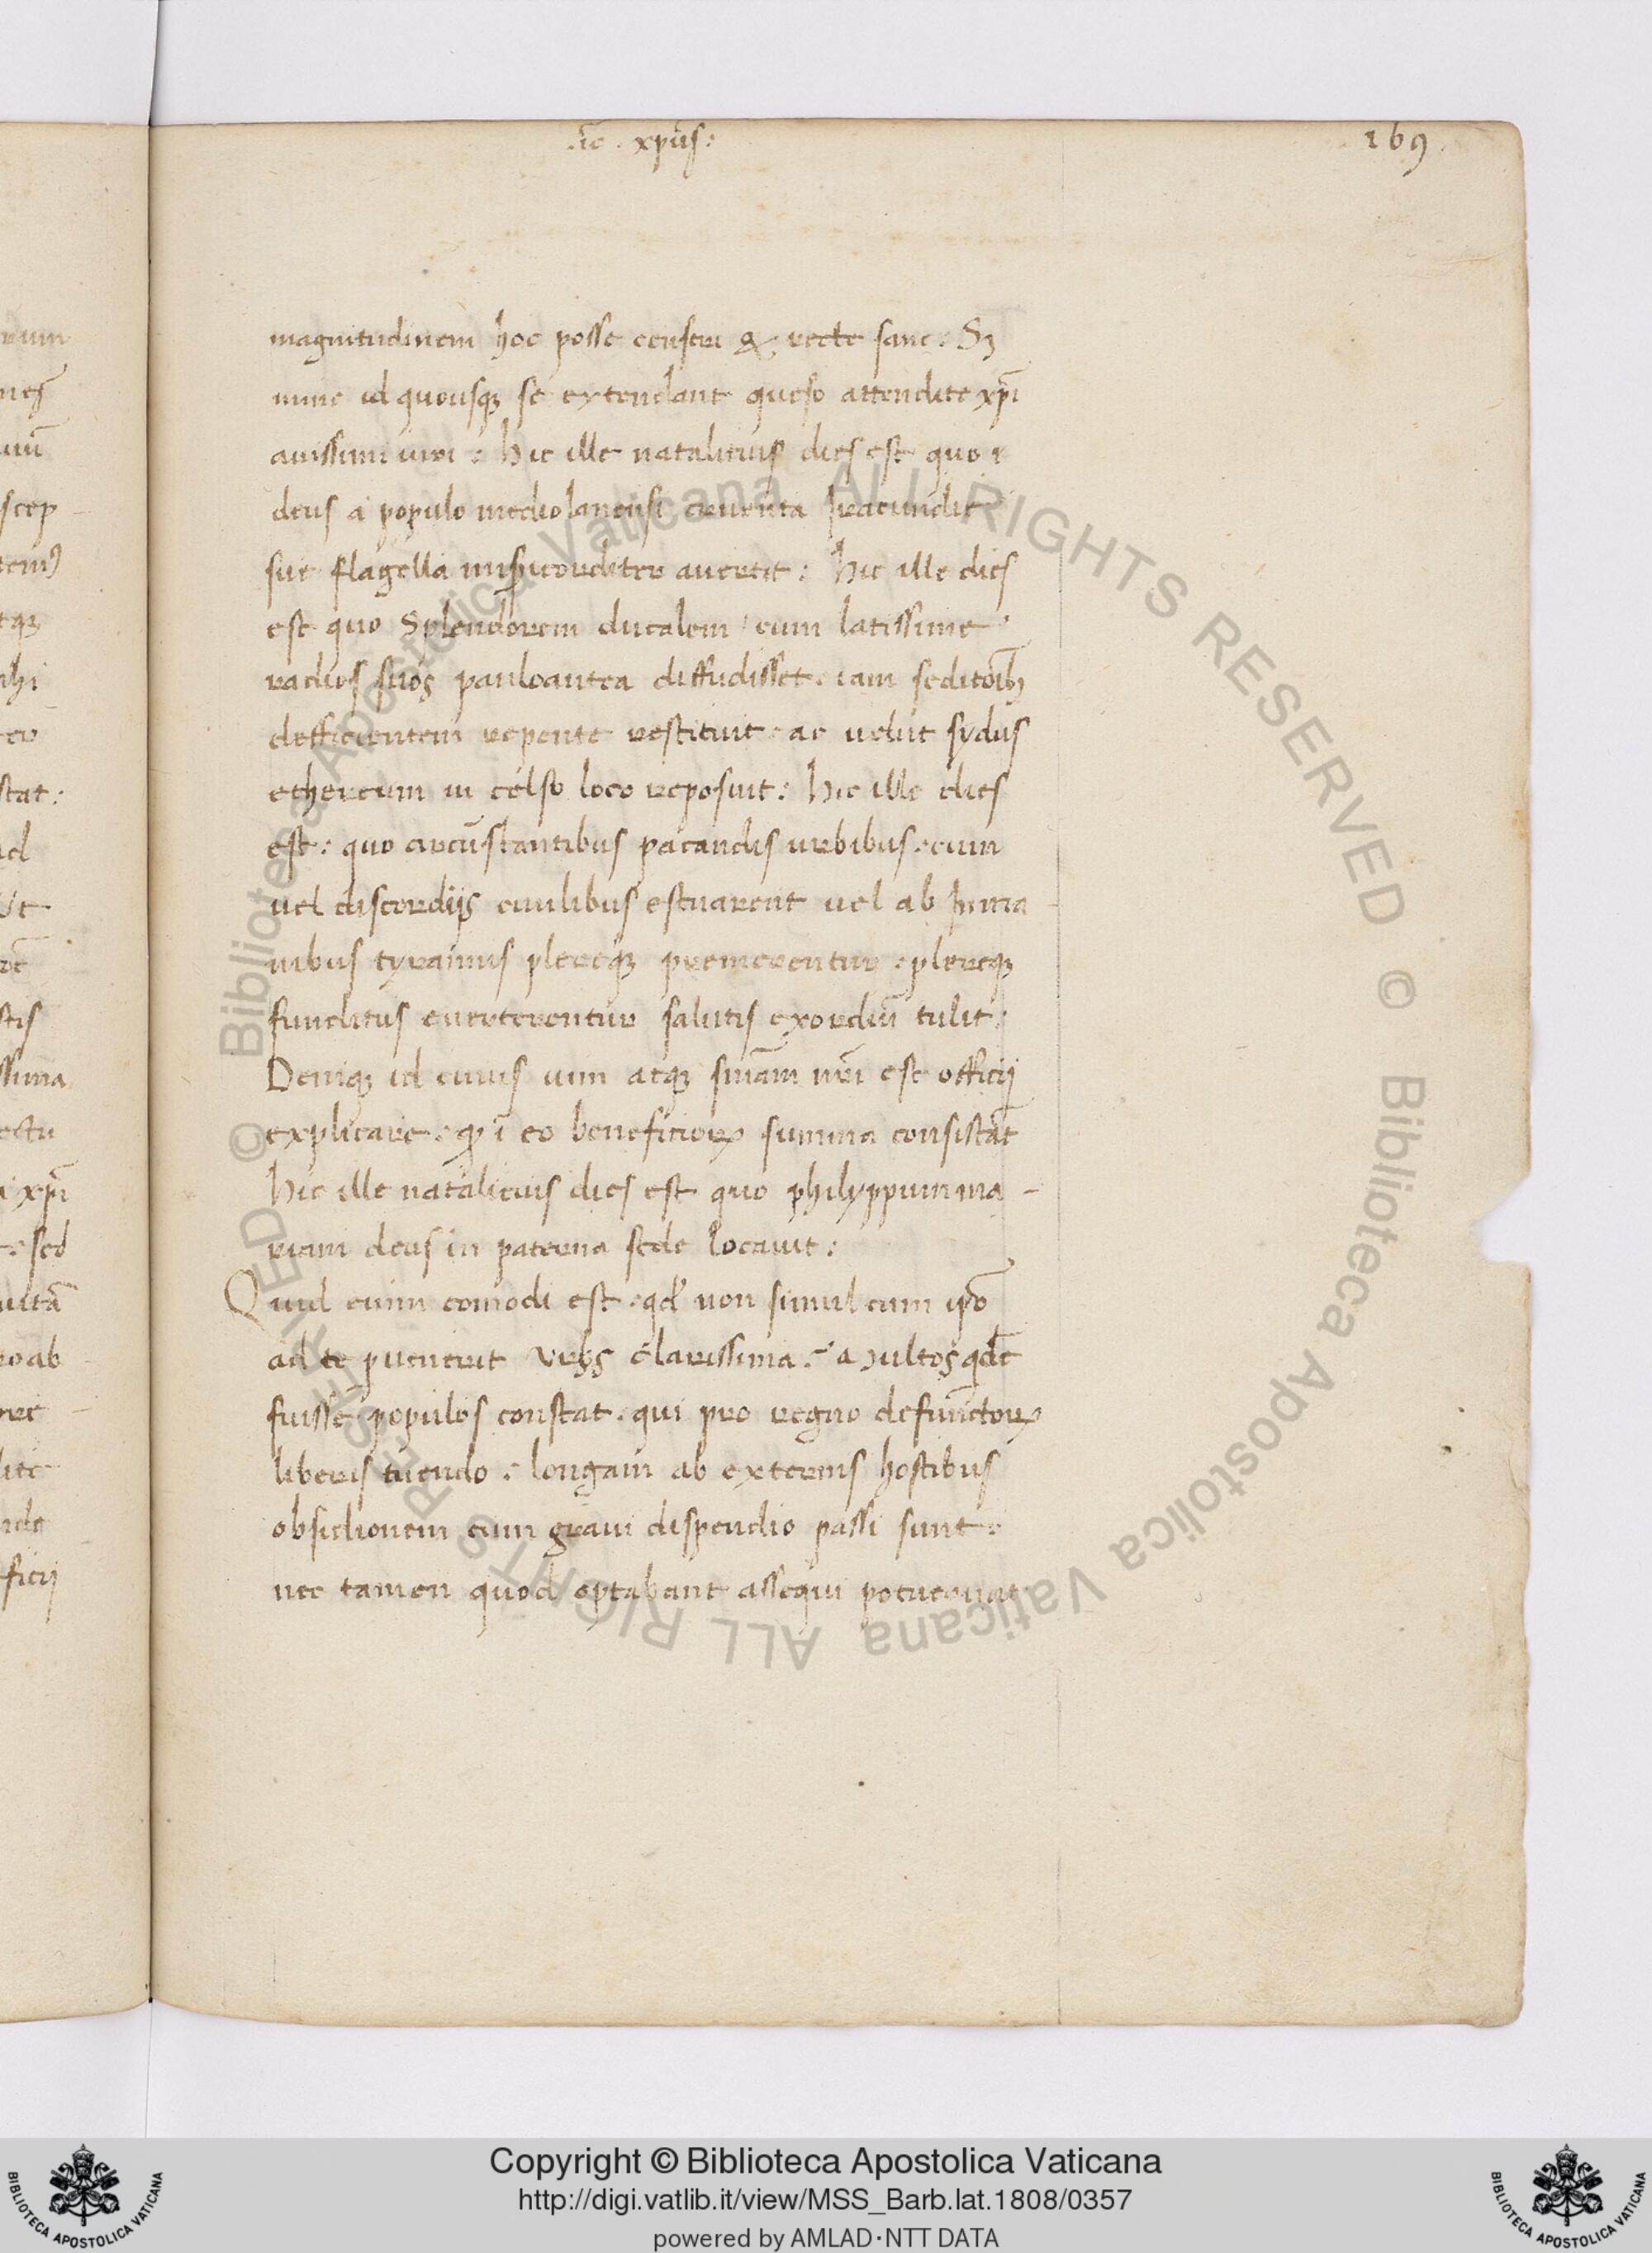 .ic. xpūs: 169.
magnitudinem hoc posse censeri & recte sane: Sꝫ
nunc id quousqꝫ se extendant queso attendite xp̄i
anissimi uiri: hic ille natalitius dies est quo
deus a populo mediolanensi cruenta Iracundie
sue flagella misericorditer auertit: hic ille dies
est quo Splendorem ducalem / cum latissime
radios suos pauloantea diffudisset. iam
defficientem repente restituit. ac uelut sydus
ethereum in celso loco reposuit: hic ille dies
est: quo circūstantibus pacandis urbibus. cum
uel discordijs ciuilibus estuarent uel ab Inma
nibus tyrannis plereqꝫ premerentur: plereqꝫ
funditus euerterentur salutis exordiū tulit:
Deniqꝫ id cuius uim atqꝫ sūmam nr̄i est officij
explicare. ī eo beneficioꝝ summa consistat
hic ille natalitius dies est quo philyppum ma-
riam deus in paterna sede locauit:
Quid enim comodi est. qd̄ non simul cum ip̄o
ad te puenerit Vrbs clarissima: Multos
fuisse populos constat. qui pro regno defunctoꝝ
liberis tuendo: longam ab externis hostibus
obsidionem cum graui dispendio passi sunt:
nec tamen quod optabant assequi potuerunt
rum
scep
stat:
xp̄i
sed
uitā
ficij
© Biblioteca Apostolica Vaticana ALL RIGHTS RESERVED © Biblioteca Apostolica Vaticana ALL RIGHTS RESERVED
Copyright © Biblioteca Apostolica Vaticana
http://digi.vatlib.it/view/MSS_Barb.lat.1808/0357
powered by AMLAD·NTT DATA
BIBLIOTECA APOSTOLICA VATICANA
BIBLIOTECA APOSTOLICA VATICANA